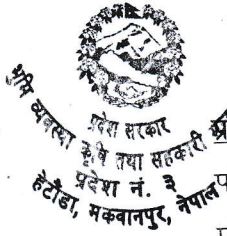 प्रदेश सरकार
भूमि व्यवस्था कृषि तथा सहकारी
प्रदेश नं. ३
हेटौंडा, मकवानपुर, नेपाल